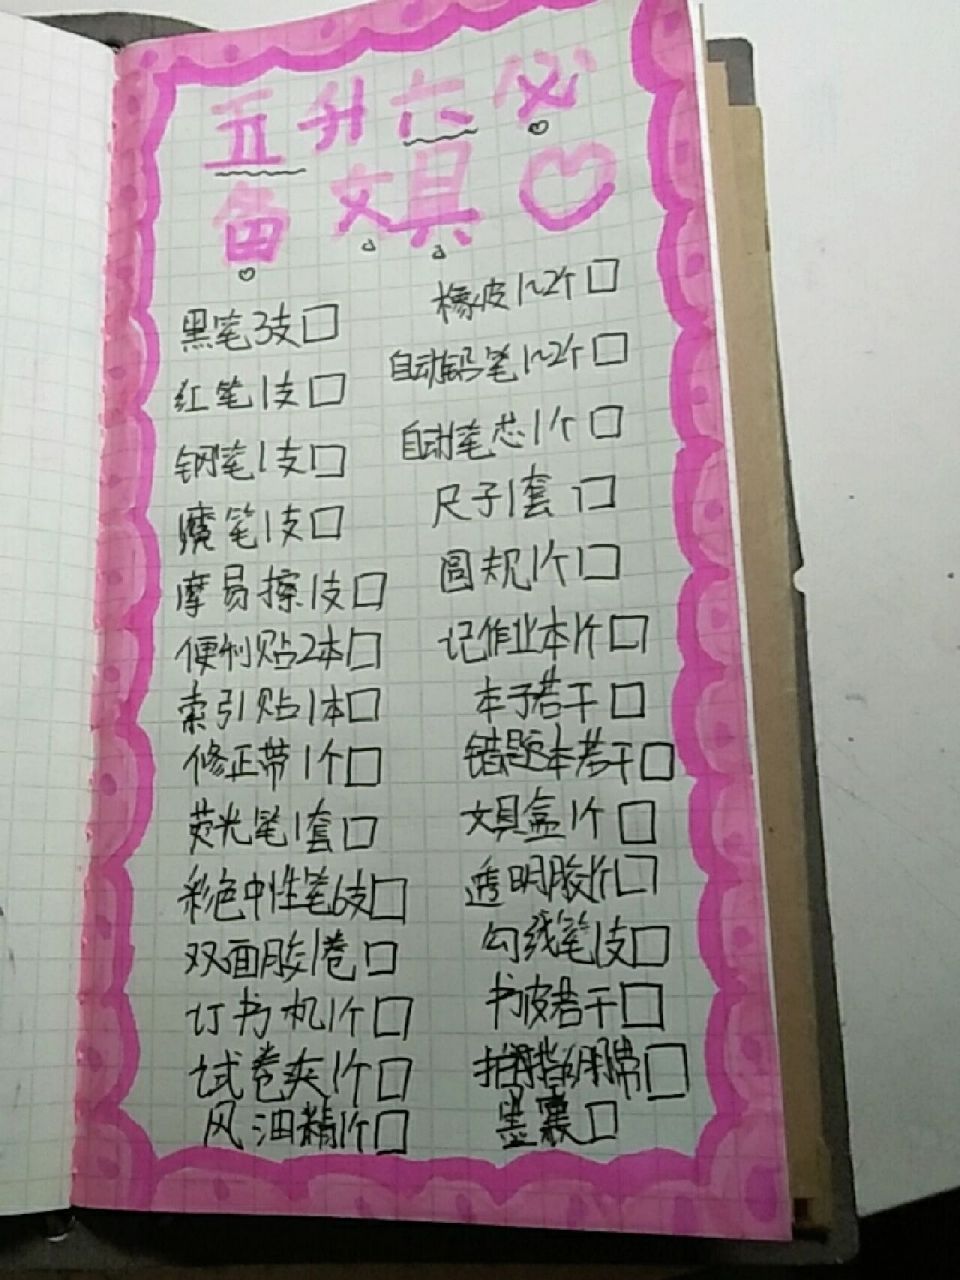 五升六必
备文具
黑笔3支
红笔1支
钢笔1支
魔笔1支
摩易擦1支
便利贴2本
索引贴1本
修正带1个
荧光笔1套
彩色中性笔6支
双面胶1卷
订书机1个
试卷夹1个
风油精1个
橡皮1~2个
自动铅笔1~2个
自动笔芯1个
尺子1套
圆规1个
记作业本1个
本子若干
错题本若干
文具盒1个
透明胶1个
勾线笔1支
书皮若干
墨囊